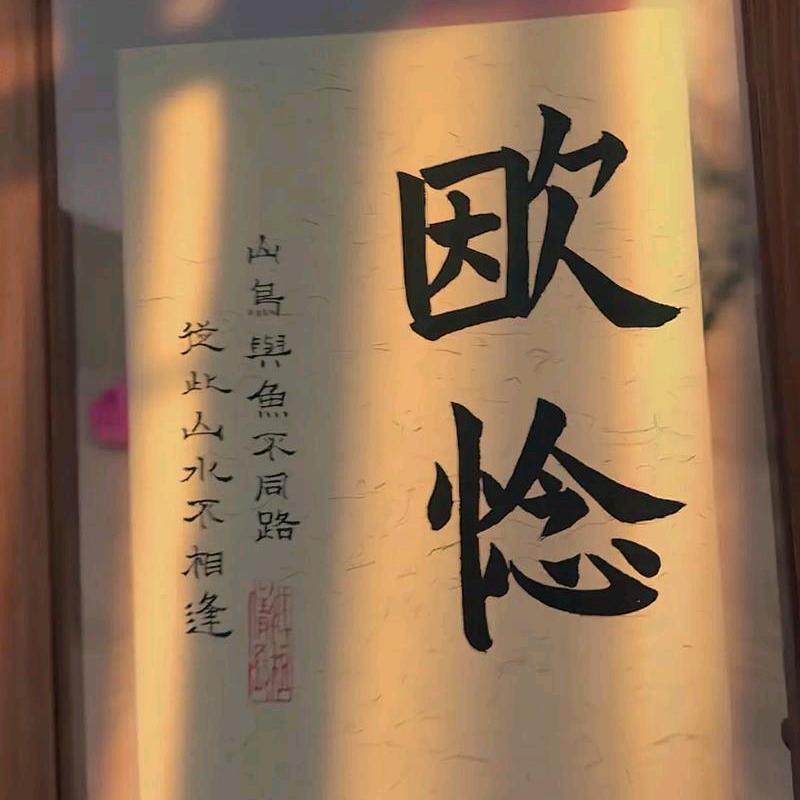 欭惗
山鳥與魚不同路
從此山水不相逢